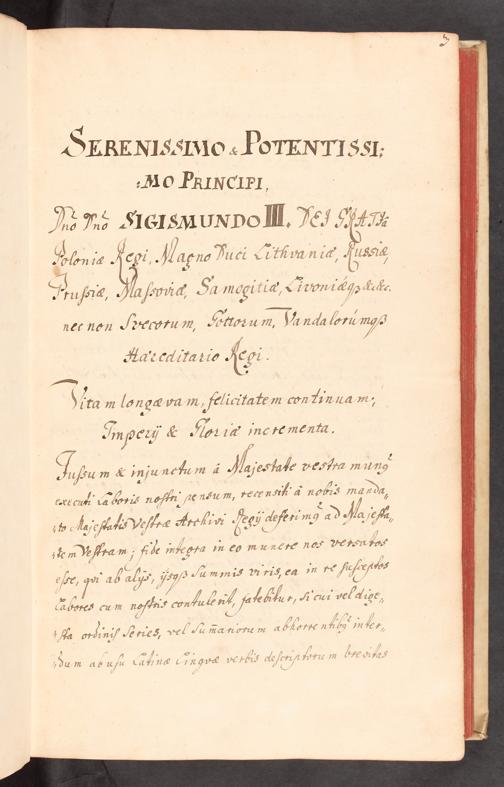 3
SERENISSIMO & POTENTISSI:
:MO PRINCIPI,
Dnō Dnō SIGISMUNDO III. DEI GRATIa
Poloniæ Regi, Magno Duci Lithvaniæ, Russiæ,
Prussiæ, Massoviæ, Samogitiæ, Livoniæqß &c. &c.
nec non Svecorum, Gottorum, Vandalorúmqß
Hæreditario Regi.
Vitam longævam, felicitatem continuam,
Imperÿ & Gloriæ incrementa.
Jussum & injunctum à Majestate vestra munꝰ
executi Laboris nostri pensum, recensiti à nobis manda-
-to Majestatis Vestræ Archivi Regÿ deferimꝰ ad Majesta-
-tem Vestram; fide integra in eo munere nos versatos
esse, qvi ab alÿs, ÿsqß summis viris, ea in re susceptos
Labores cum nostris contulerit, fatebitur, si cui vel dige-
-sta ordinis series, vel sum̄ariorum abhorrentibꝰ inter-
-dum ab usu Latinæ Lingvæ verbis descriptorum brevitas